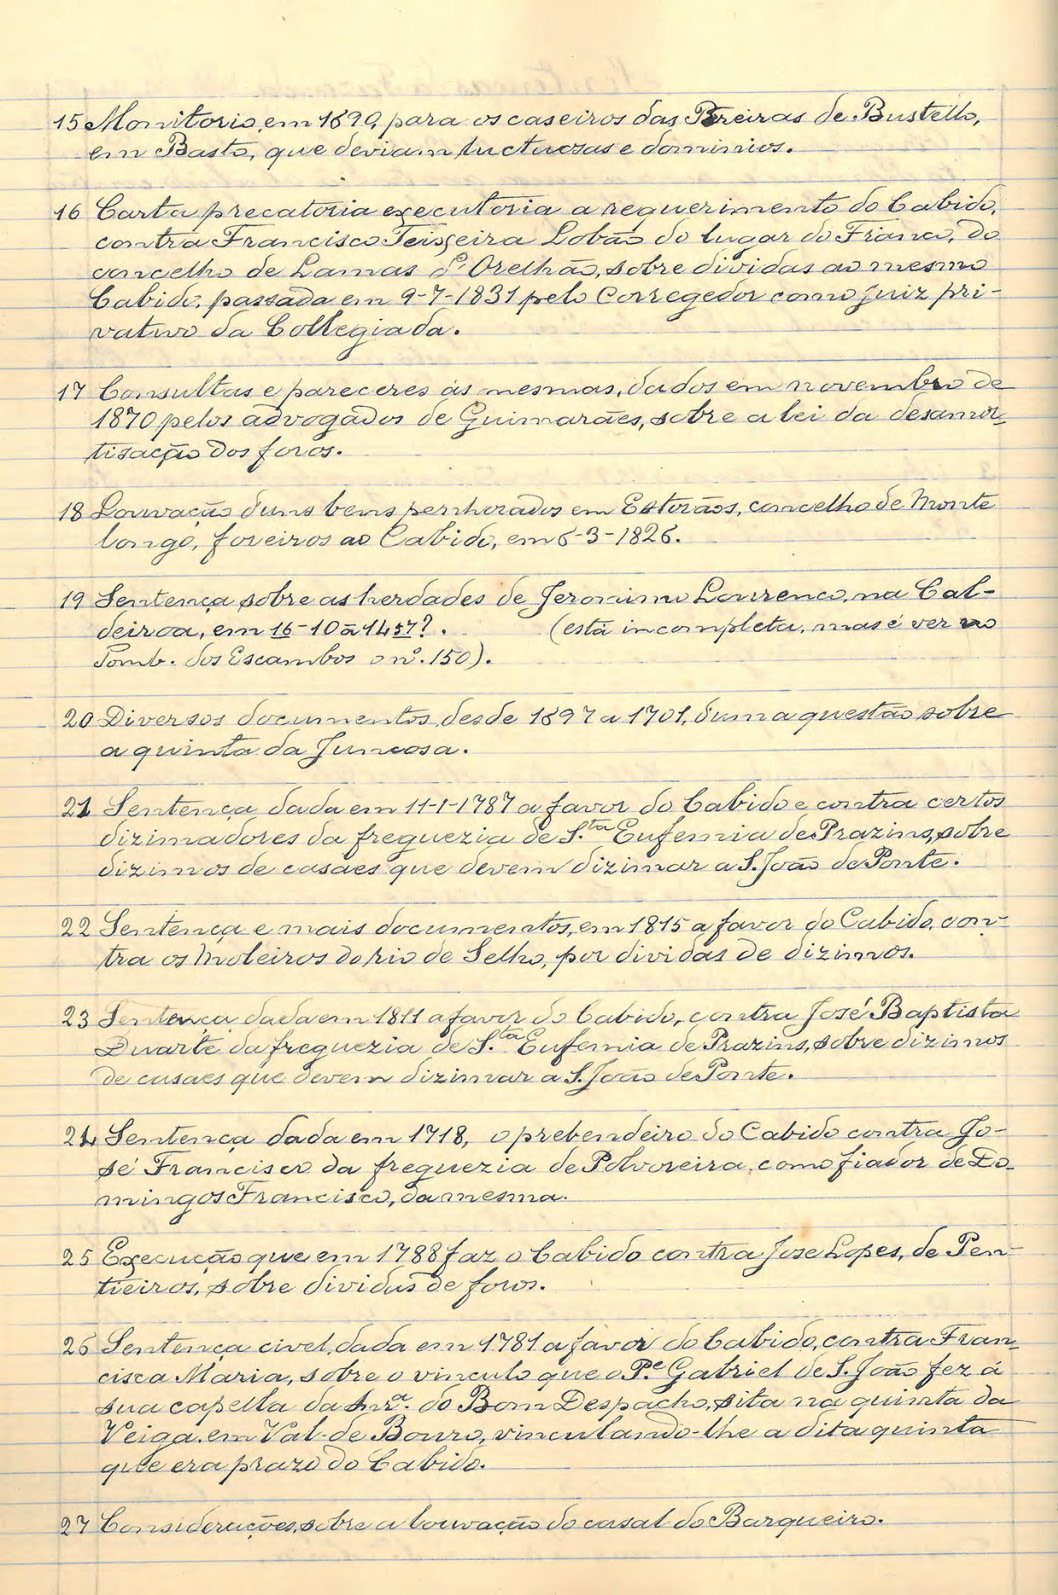 15 Monitorio, em 1690, para os caseiros das Pereiras de Bustello,
em Basto, que deviam luctuosas e dominios.
16 Carta precatoria executoria a requerimento do Cabido,
contra Francisco Teixeira Lobão do lugar do Franco, do
concelho de Lamas d'Orelhão, sobre dividas ao mesmo
Cabido, passada em 9-7-1831 pelo Corregedor como juiz pri-
vativo da Collegiada.
17 Consultas e pareceres ás mesmas, dados em novembro de
1870 pelos advogados de Guimarães, sobre a lei da desamor-
tisação dos foros.
18 Louvação duns bens penhorados em Estorãos, concelho de Monte
longo, foreiros ao Cabido, em 6-3-1826.
19 Sentença sobre as herdades de Jeronimo Lourenco, na Cal-
deiroa, em 16-10-1457?. (está incompleta, mas é ver no
Tomb. dos Escambos o nº. 150).
20 Diversos documentos, desde 1697 a 1701, duma questão sobre
a quinta da Juncosa.
21 Sentença dada em 11-1-1787 a favor do Cabido e contra certos
dizimadores da freguezia de S.ta Eufemia de Prazins, sobre
dizimos de casaes que devem dizimar a S. João de Ponte.
22 Sentença e mais documentos, em 1815 a favor do Cabido, con-
tra os moleiros do rio de Selho, por dividas de dizimos.
23 Sentença dada em 1811 a favor do Cabido, contra José Baptista
Duarte da freguezia de S.ta Eufemia de Prazins, sobre dizimos
de casaes que devem dizimar a S. João de Ponte.
24 Sentença dada em 1718, o prebendeiro do Cabido contra Jo-
sé Francisco da freguezia de Polvoreira, como fiador de Do-
mingos Francisco, da mesma.
25 Execução que em 1788 faz o Cabido contra Jose Lopes, de Pen-
tieiros, sobre dividas de foros.
26 Sentença civel, dada em 1781 a favor do Cabido, contra Fran-
cisca Maria, sobre o vinculo que o P.e Gabriel de S. João fez á
sua capella da Snr.a do Bom Despacho, sita na quinta da
Veiga, em Val-de Bouro, vinculando-lhe a dita quinta
que era prazo do Cabido.
27 Considerações, sobre a louvação do casal do Barqueiro.